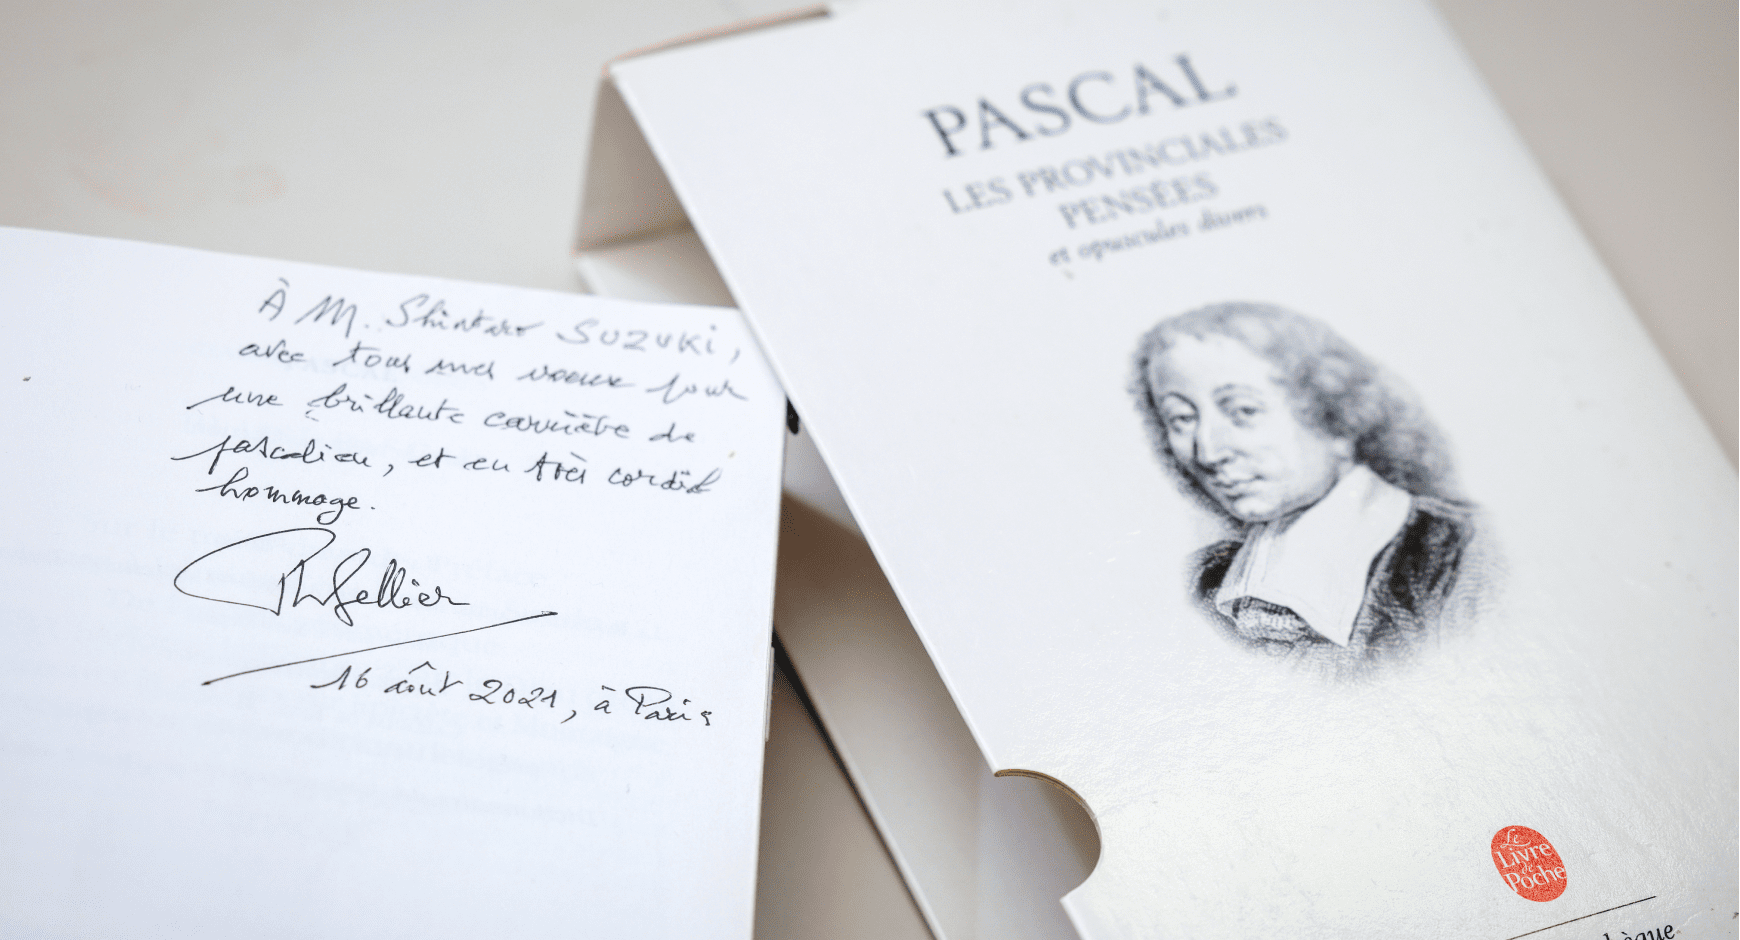 À M. Shintaro SUZUKI,
avec tous mes voeux pour
une brillante carrière de
pascalien, et en très cordial
hommage.
Ph Sellier
16 août 2021, à Paris
PASCAL
LES PROVINCIALES
PENSÉES
et opuscules divers
Le
Livre
de
Poche